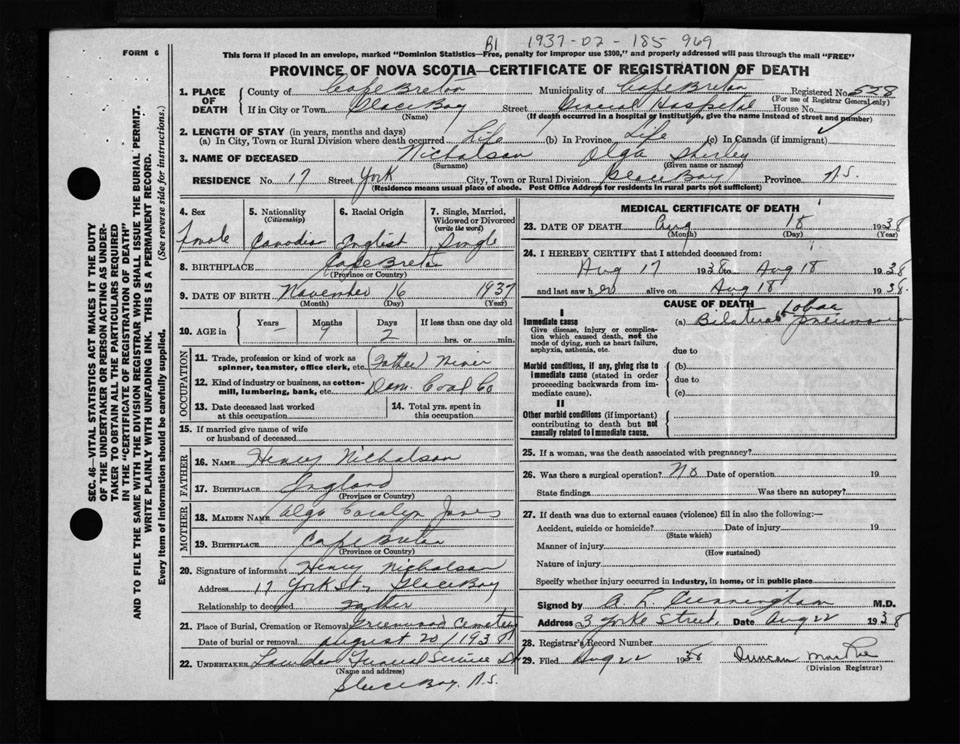 B1 1937-02-185 969
FORM 6
This form if placed in an envelope, marked "Dominion Statistics—Free, penalty for improper use $300," and properly addressed will pass through the mail "FREE"
PROVINCE OF NOVA SCOTIA—CERTIFICATE OF REGISTRATION OF DEATH
SEC. 46—VITAL STATISTICS ACT MAKES IT THE DUTY
OF THE UNDERTAKER OR PERSON ACTING AS UNDER-
TAKER TO OBTAIN ALL THE PARTICULARS REQUIRED
IN THE "CERTIFICATE OF REGISTRATION OF DEATH"
AND TO FILE THE SAME WITH THE DIVISION REGISTRAR WHO SHALL ISSUE THE BURIAL PERMIT.
WRITE PLAINLY WITH UNFADING INK. THIS IS A PERMANENT RECORD.
Every item of information should be carefully supplied. (See reverse side for instructions.)
1. PLACE OF DEATH County of Cape Breton Municipality of Cape Breton Registered No 528
(For use of Registrar General only)
If in City or Town Glace Bay Street General Hospital House No.
(Name) (If death occurred in a hospital or institution, give the name instead of street and number)
2. LENGTH OF STAY (in years, months and days)
(a) In City, Town or Rural Division where death occurred Life (b) In Province Life (c) In Canada (if immigrant)
3. NAME OF DECEASED Nicholson Olga Shirley
(Surname) (Given name or names)
RESIDENCE No. 17 Street York City, Town or Rural Division Glace Bay Province N.S.
(Residence means usual place of abode. Post Office Address for residents in rural parts not sufficient)
4. Sex female
5. Nationality (Citizenship) Canadia
6. Racial Origin English
7. Single, Married, Widowed or Divorced (write the word) Single
8. BIRTHPLACE Cape Breton
(Province or Country)
9. DATE OF BIRTH November 16 1937
(Month) (Day) (Year)
10. AGE in Years – Months 9 Days 2 If less than one day old hrs. or min.
OCCUPATION
11. Trade, profession or kind of work as spinner, teamster, office clerk, etc. (Father) Miner
12. Kind of industry or business, as cotton-mill, lumbering, bank, etc. Dom. Coal Co
13. Date deceased last worked at this occupation
14. Total yrs. spent in this occupation
15. If married give name of wife or husband of deceased
FATHER
16. NAME Henry Nicholson
17. BIRTHPLACE England
(Province or Country)
MOTHER
18. MAIDEN NAME Olga Carolyn Jones
19. BIRTHPLACE Cape Breton
(Province or Country)
20. Signature of informant Henry Nicholson
Address 17 York St., Glace Bay
Relationship to deceased Father
21. Place of Burial, Cremation or Removal Greenwood Cemetery
Date of burial or removal August 20/1938
22. UNDERTAKER Funeral Service
(Name and address)
Glace Bay. N.S.
MEDICAL CERTIFICATE OF DEATH
23. DATE OF DEATH Aug 18 1938
(Month) (Day) (Year)
24. I HEREBY CERTIFY that I attended deceased from:
Aug 17 1938 to Aug 18 1938
and last saw her alive on Aug 18 1938.
CAUSE OF DEATH
I
Immediate cause
Give disease, injury or complication which caused death, not the mode of dying, such as heart failure, asphyxia, asthenia, etc.
(a) Bilateral Lobar Pneumonia
due to
Morbid conditions, if any, giving rise to immediate cause (stated in order proceeding backwards from immediate cause).
(b)
due to
(c)
II
Other morbid conditions (if important) contributing to death but not causally related to immediate cause.
25. If a woman, was the death associated with pregnancy?
26. Was there a surgical operation? No Date of operation 19
State findings Was there an autopsy?
27. If death was due to external causes (violence) fill in also the following:—
Accident, suicide or homicide? Date of injury 19
(State which)
Manner of injury
(How sustained)
Nature of injury
Specify whether injury occurred in industry, in home, or in public place
Signed by A. L. Cunningham M.D.
Address 3 Yorke Street. Date Aug 22 1938
28. Registrar's Record Number
29. Filed Aug 22 1938 Duncan
(Division Registrar)